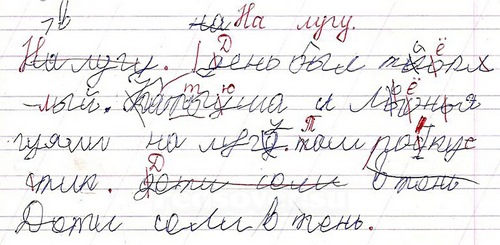 на На лугу.
На лугу. День был тёп
-лый. Катюша и Лёня
гуяли на лугу. Там рос кус
тик. дети сели в тень
Доти сели в тень.